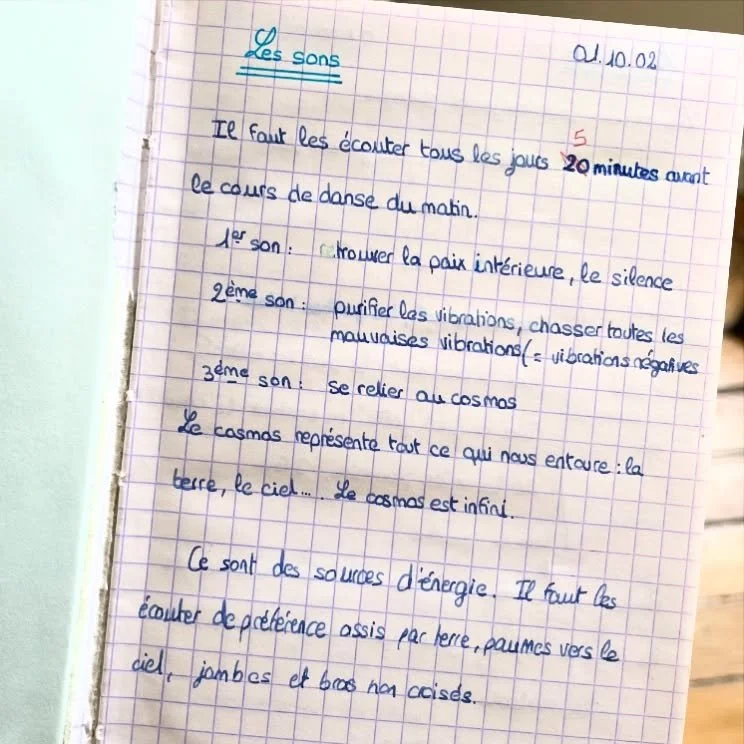 Les sons
01.10.02
Il faut les écouter tous les jours 20 minutes avant
5
le cours de danse du matin.
1er son : trouver la paix intérieure, le silence
2ème son : purifier les vibrations, chasser toutes les
mauvaises vibrations (= vibrations négatives
3ème son : se relier au cosmos
Le cosmos représente tout ce qui nous entoure : la
terre, le ciel.... Le cosmos est infini.
Ce sont des sources d'énergie. Il faut les
écouter de préférence assis par terre, paumes vers le
ciel, jambes et bras non croisés.